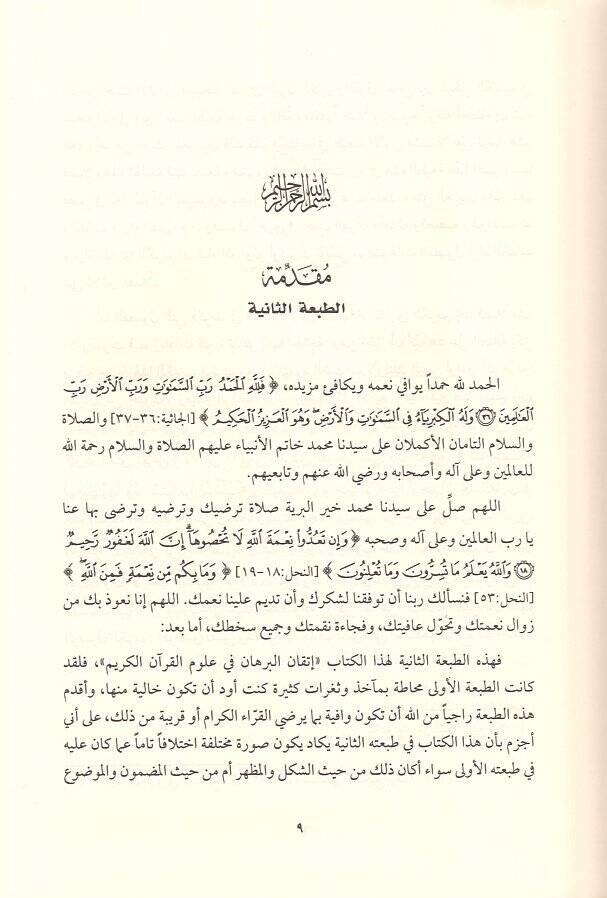 بسم الله الرحمن الرحيم
مُقَدِّمة
الطبعة الثانية
الحمد لله حمداً يوافي نعمه ويكافئ مزيده، ﴿ فَلِلَّهِ الْحَمْدُ رَبِّ السَّمَاوَاتِ وَرَبِّ الْأَرْضِ رَبِّ
الْعَالَمِينَ ۝٣٦ وَلَهُ الْكِبْرِيَاءُ فِي السَّمَاوَاتِ وَالْأَرْضِ وَهُوَ الْعَزِيزُ الْحَكِيمُ ﴾ [الجاثية:٣٦-٣٧] والصلاة
والسلام التامان الأكملان على سيدنا محمد خاتم الأنبياء عليهم الصلاة والسلام رحمة الله
للعالمين وعلى آله وأصحابه ورضي الله عنهم وتابعيهم.
اللهم صلِّ على سيدنا محمد خير البرية صلاة ترضيك وترضيه وترضى بها عنا
يا رب العالمين وعلى آله وصحبه ﴿ وَإِن تَعُدُّوا نِعْمَةَ اللَّهِ لَا تُحْصُوهَا إِنَّ اللَّهَ لَغَفُورٌ رَّحِيمٌ
۝١٨ وَاللَّهُ يَعْلَمُ مَا تُسِرُّونَ وَمَا تُعْلِنُونَ ﴾ [النحل:١٨-١٩] ﴿ وَمَا بِكُم مِّن نِّعْمَةٍ فَمِنَ اللَّهِ ﴾
[النحل:٥٣] فنسألك ربنا أن توفقنا لشكرك وأن تديم علينا نعمك. اللهم إنا نعوذ بك من
زوال نعمتك وتحوّل عافيتك، وفجاءة نقمتك وجميع سخطك، أما بعد:
فهذه الطبعة الثانية لهذا الكتاب «إتقان البرهان في علوم القرآن الكريم»، فلقد
كانت الطبعة الأولى محاطة بمآخذ وثغرات كثيرة كنت أود أن تكون خالية منها، وأقدم
هذه الطبعة راجياً من الله أن تكون وافية بما يرضي القرّاء الكرام أو قريبة من ذلك، على أني
أجزم بأن هذا الكتاب في طبعته الثانية يكاد يكون صورة مختلفة اختلافاً تاماً عما كان عليه
في طبعته الأولى سواء أكان ذلك من حيث الشكل والمظهر أم من حيث المضمون والموضوع
٩